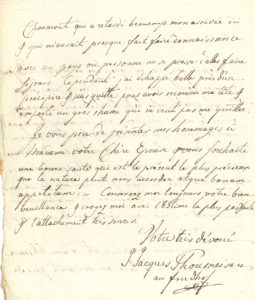 Chaumont qui a retardé beaucoup mon arrivée ici
& qui m'auroit presque fait faire connaissance
avec un pays où personne ne se presse d'aller faire
séjour, cependant j'ai échappé belle près d'un
précipice & suis quitte pour avois
emporté un gros rhume qui ne veut pas me quitter.
Je vous prie de présenter mes hommages à
Madame votre Chère Epouse, & vous souhaite
une bonne santé qui est le présent le plus précieux
que la nature puisse nous accorder atque bonum
appetitum : — Conservez moi toujours votre bien-
veuillance & croyez moi avec l'Estime la plus parfaite
& l'attachement très sincer
Votre très dévoué
J. Jacques
au